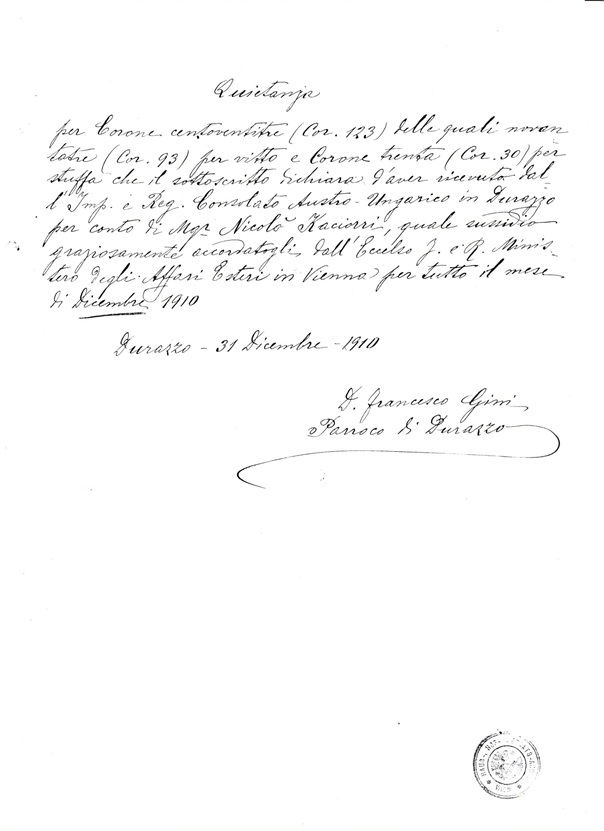 Quietanza
per Corone centoventitre (Cor. 123) delle quali novan
tatre (Cor. 93) per vitto e Corone trenta (Cor. 30) per
stuffa che il sottoscritto dichiara d'aver ricevuto dal-
l'Imp. e Reg. Consolato Austro-Ungarico in Durazzo
per conto di Mgr Nicolò Kaciorri, quale sussidio
graziosamente accordatogli dall'Eccelso J. e R. Minis-
tero degli Affari Esteri in Vienna per tutto il mese
di Dicembre 1910
Durazzo - 31 Dicembre - 1910
D. Francesco Gini
Parroco di Durazzo